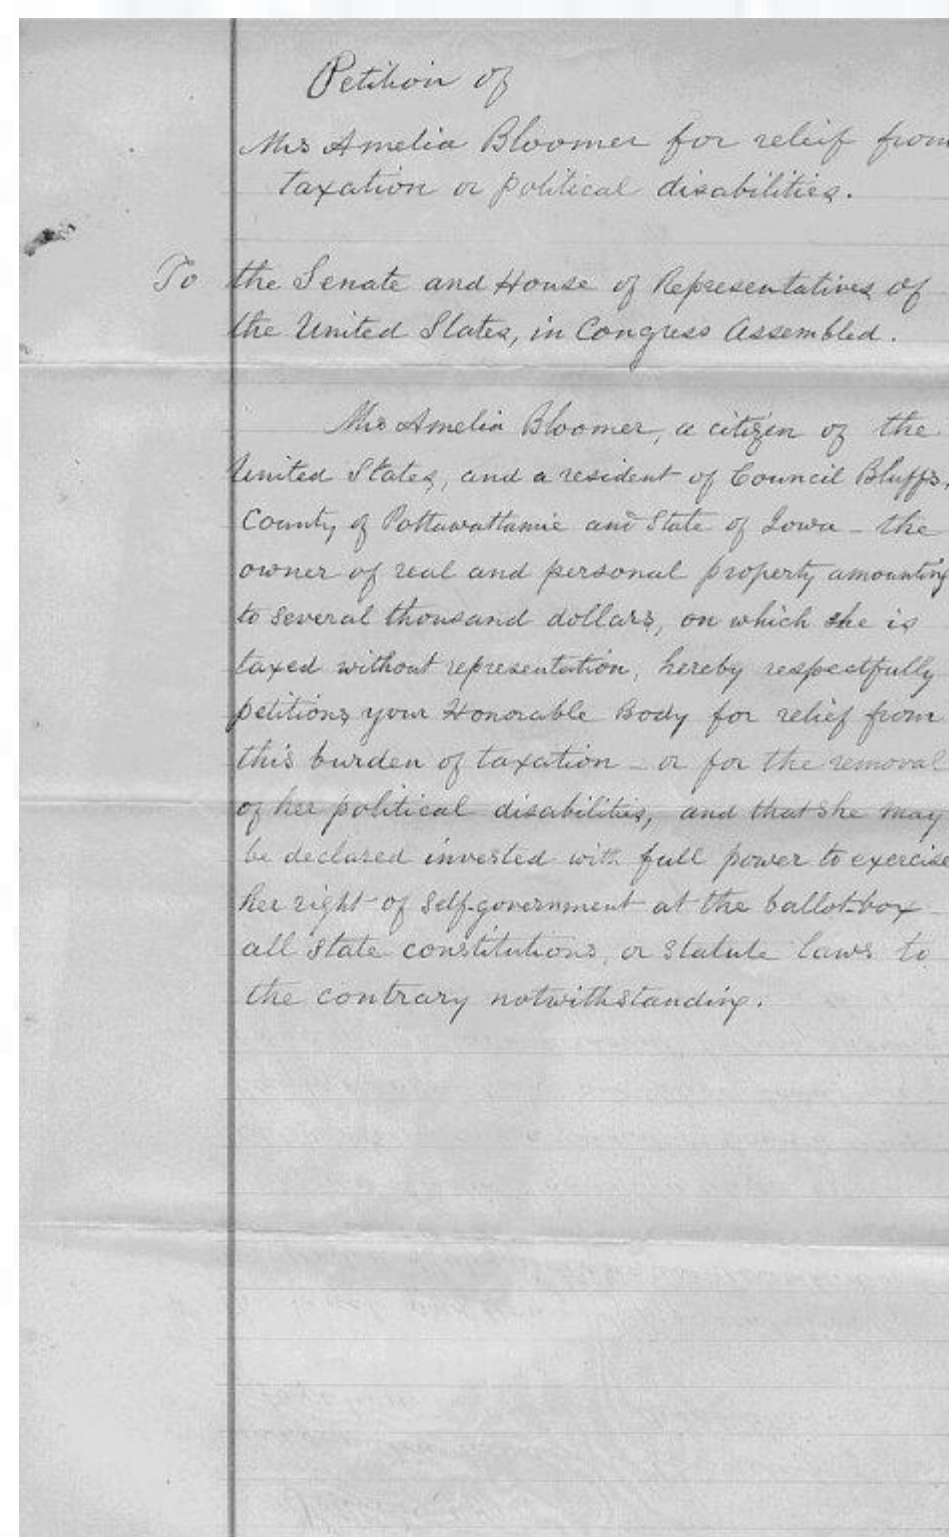 Petition of
Mrs Amelia Bloomer for releif from
taxation or political disabilities.
To the Senate and House of Representatives of
the United States, in Congress Assembled.
Mrs Amelia Bloomer, a citizen of the
United States, and a resident of Council Bluffs,
County of Pottawattamie and State of Iowa - the
owner of real and personal property amounting
to several thousand dollars, on which she is
taxed without representation, hereby respectfully
petitions your Honorable Body for relief from
this burden of taxation - or for the removal
of her political disabilities, and that she may
be declared invested with full power to exercise
her right of self-government at the ballot-box -
all State constitutions, or statute laws to
the contrary notwithstanding.